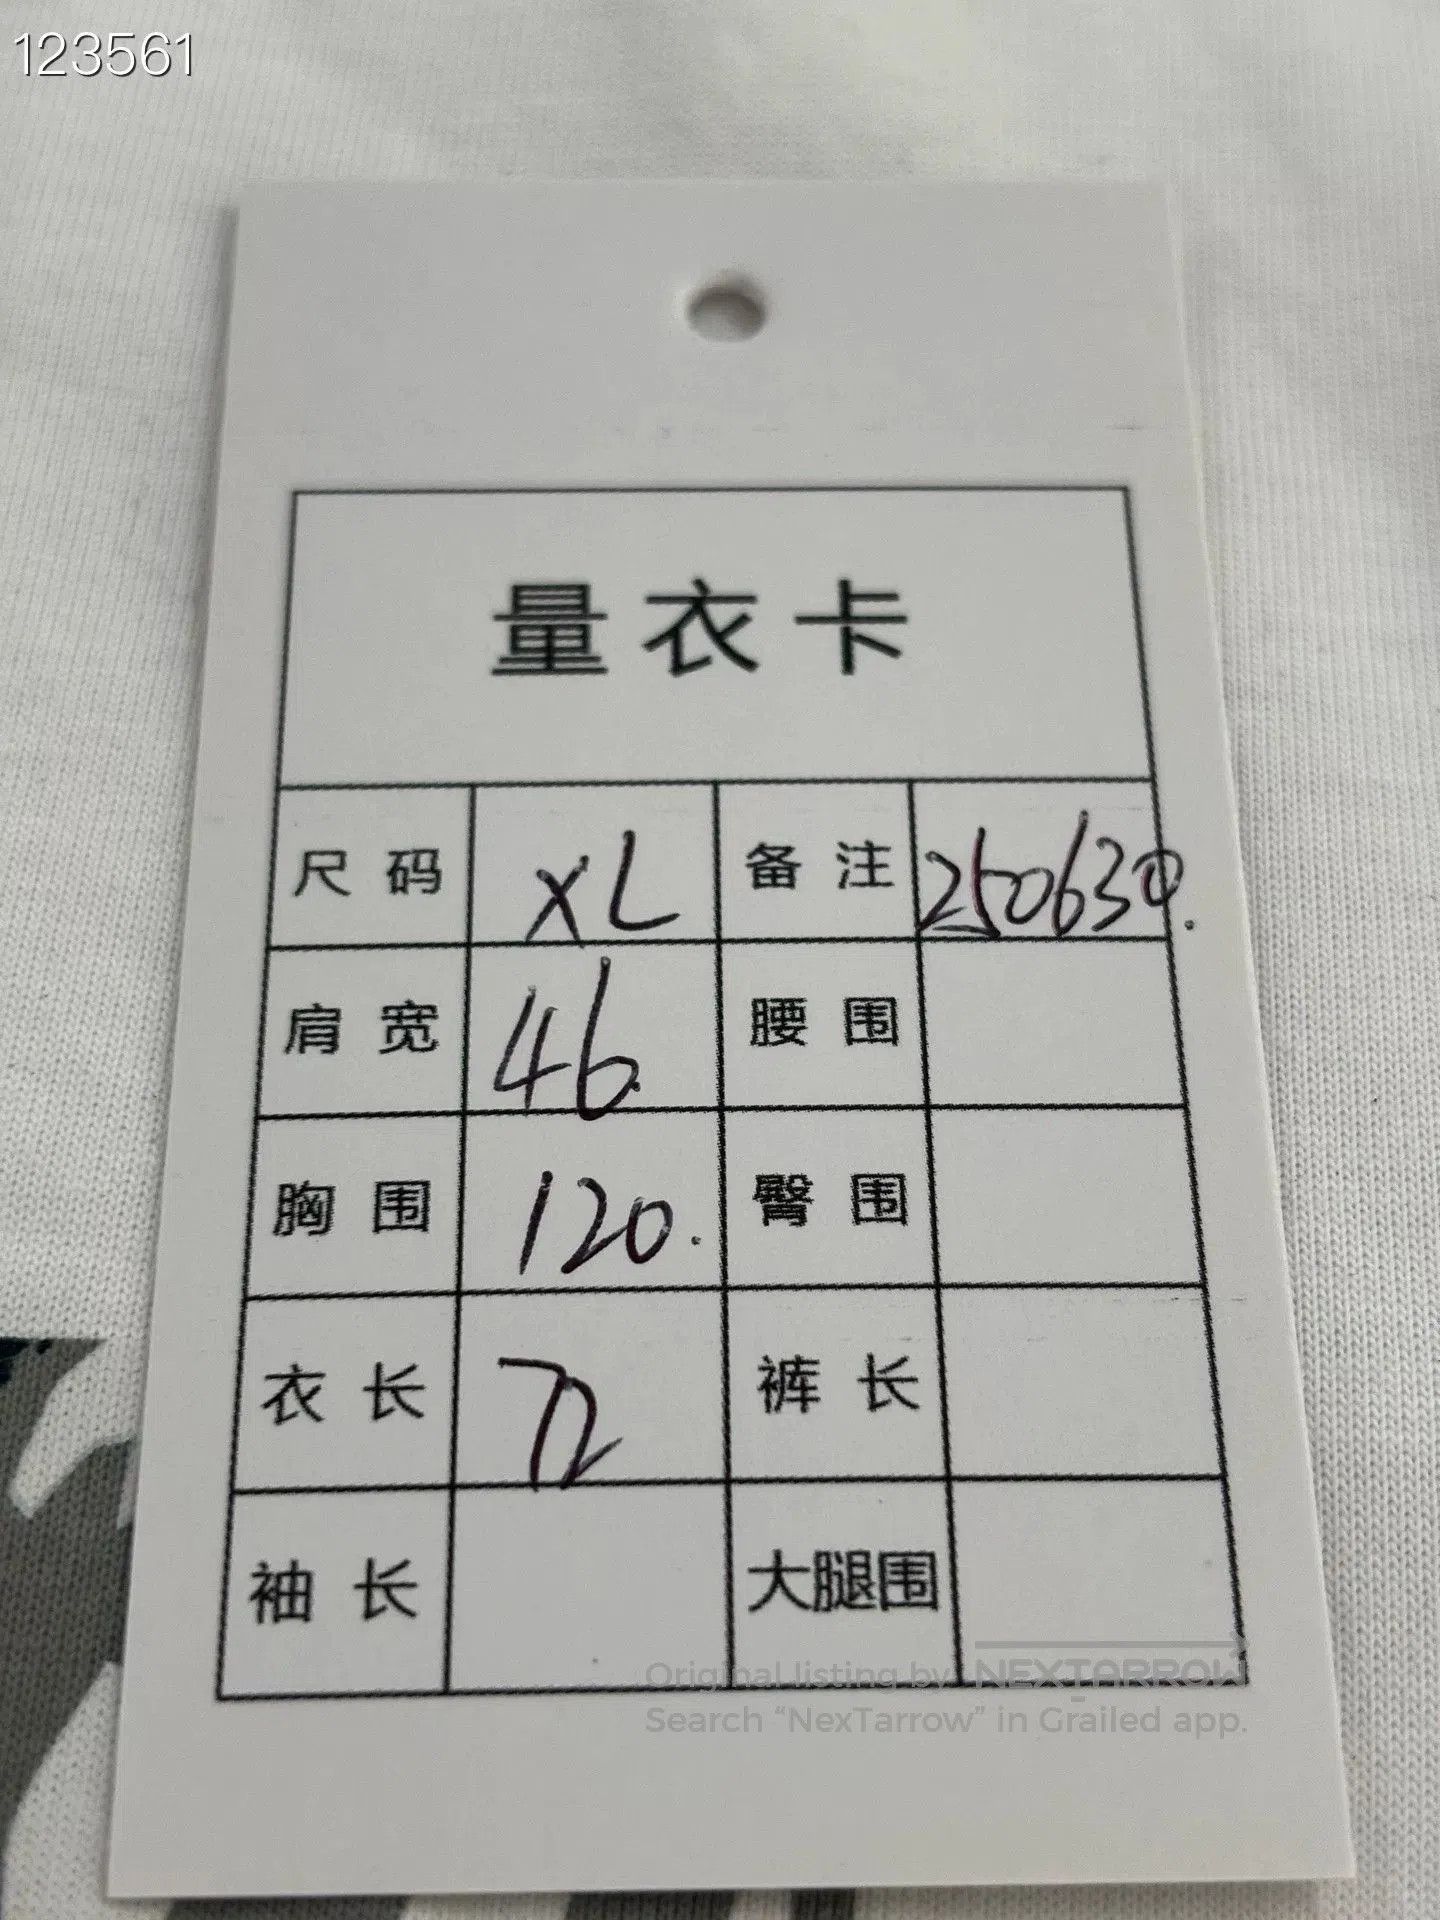 123561
量衣卡
尺码 XL 备注 250630.
肩宽 46. 腰围
胸围 120. 臀围
衣长 72 裤长
袖长 大腿围
Original listing by NEXTARROW
Search “NexTarrow” in Grailed app.